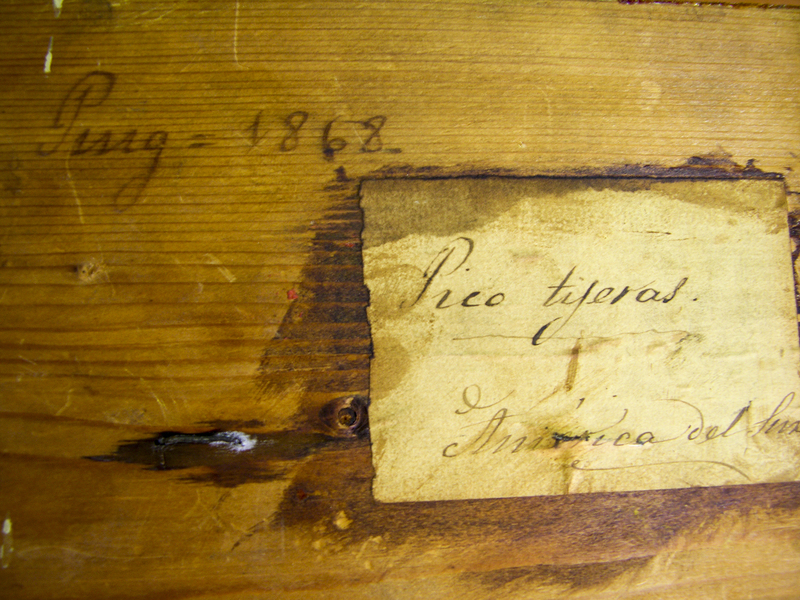 Puig = 1868
Pico tijeras.
América del Sur